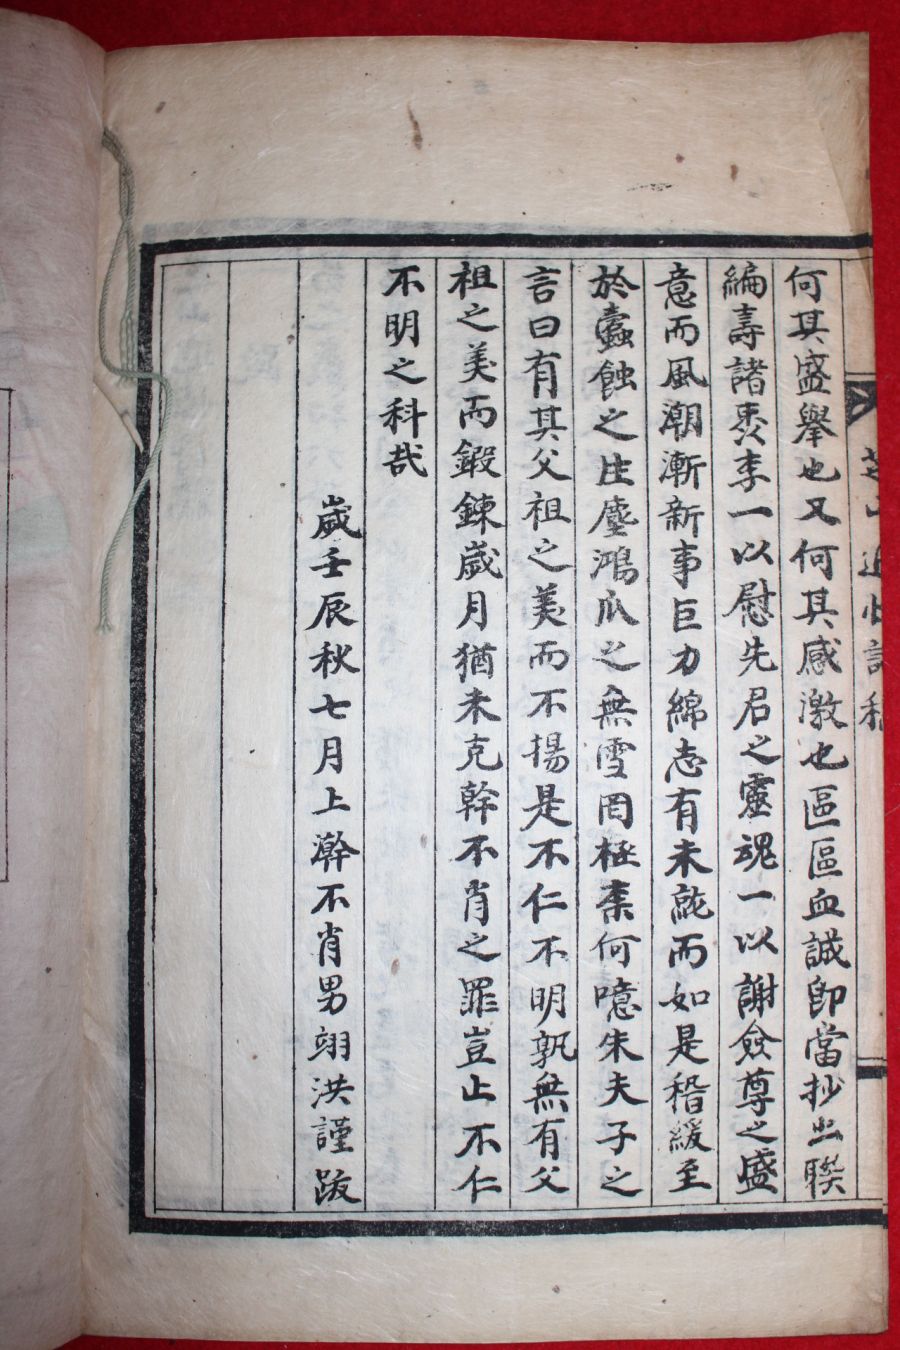 何其盛擧也又何其感激也區區血誠卽當抄出聯
編壽諸棗李一以慰先君之靈魂一以謝僉尊之盛
意而風潮漸新事巨力綿志有未就而如是稽緩至
於蠹蝕之生塵鴻爪之無雪罔極柰何噫朱夫子之
言曰有其父祖之美而不揚是不仁不明孰無有父
祖之美而鍛鍊歲月猶未克幹不肖之罪豈止不仁
不明之科哉
歲壬辰秋七月上澣不肖男翊洪謹跋